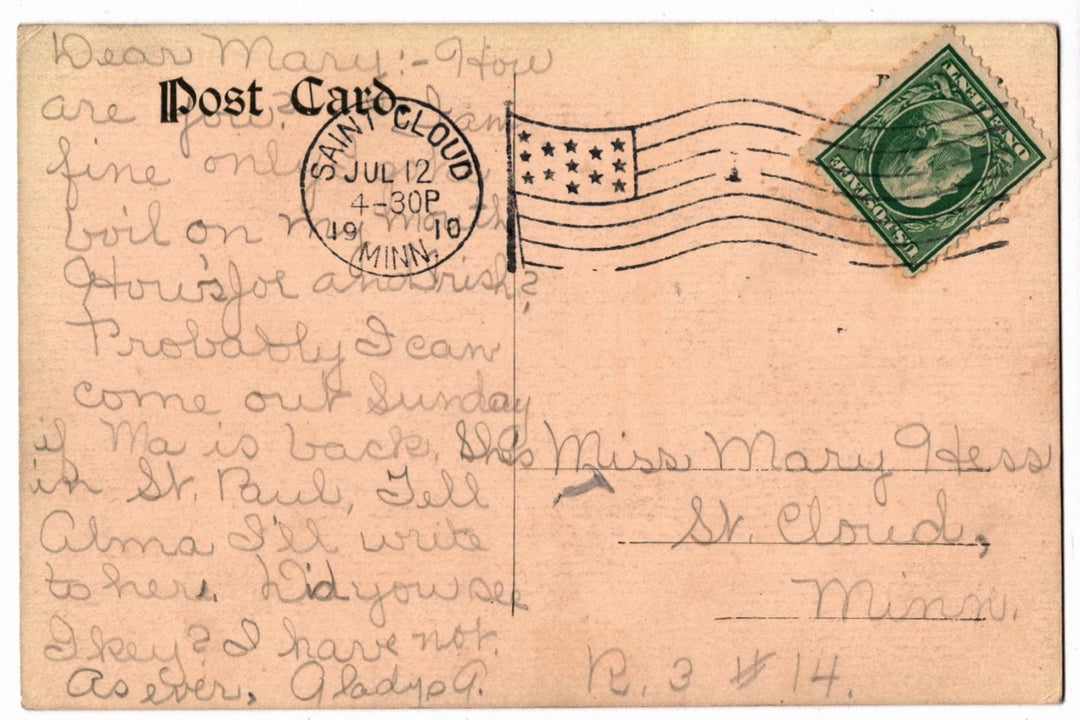 Dear Mary:- How
Post Card.
are you? I am
fine only a
boil on my mouth
How's Joe and Irish?
Probably I can
come out Sunday
if Ma is back. She's
in St. Paul, Tell
Alma I'll write
to her. Did you see
Ikey? I have not.
As ever, Gladys A.
SAINT CLOUD
JUL 12
4-30P
1910
MINN.
1
U.S. POSTAGE
ONE CENT
Miss Mary Hess
St. Cloud,
Minn.
R. 3 # 14.